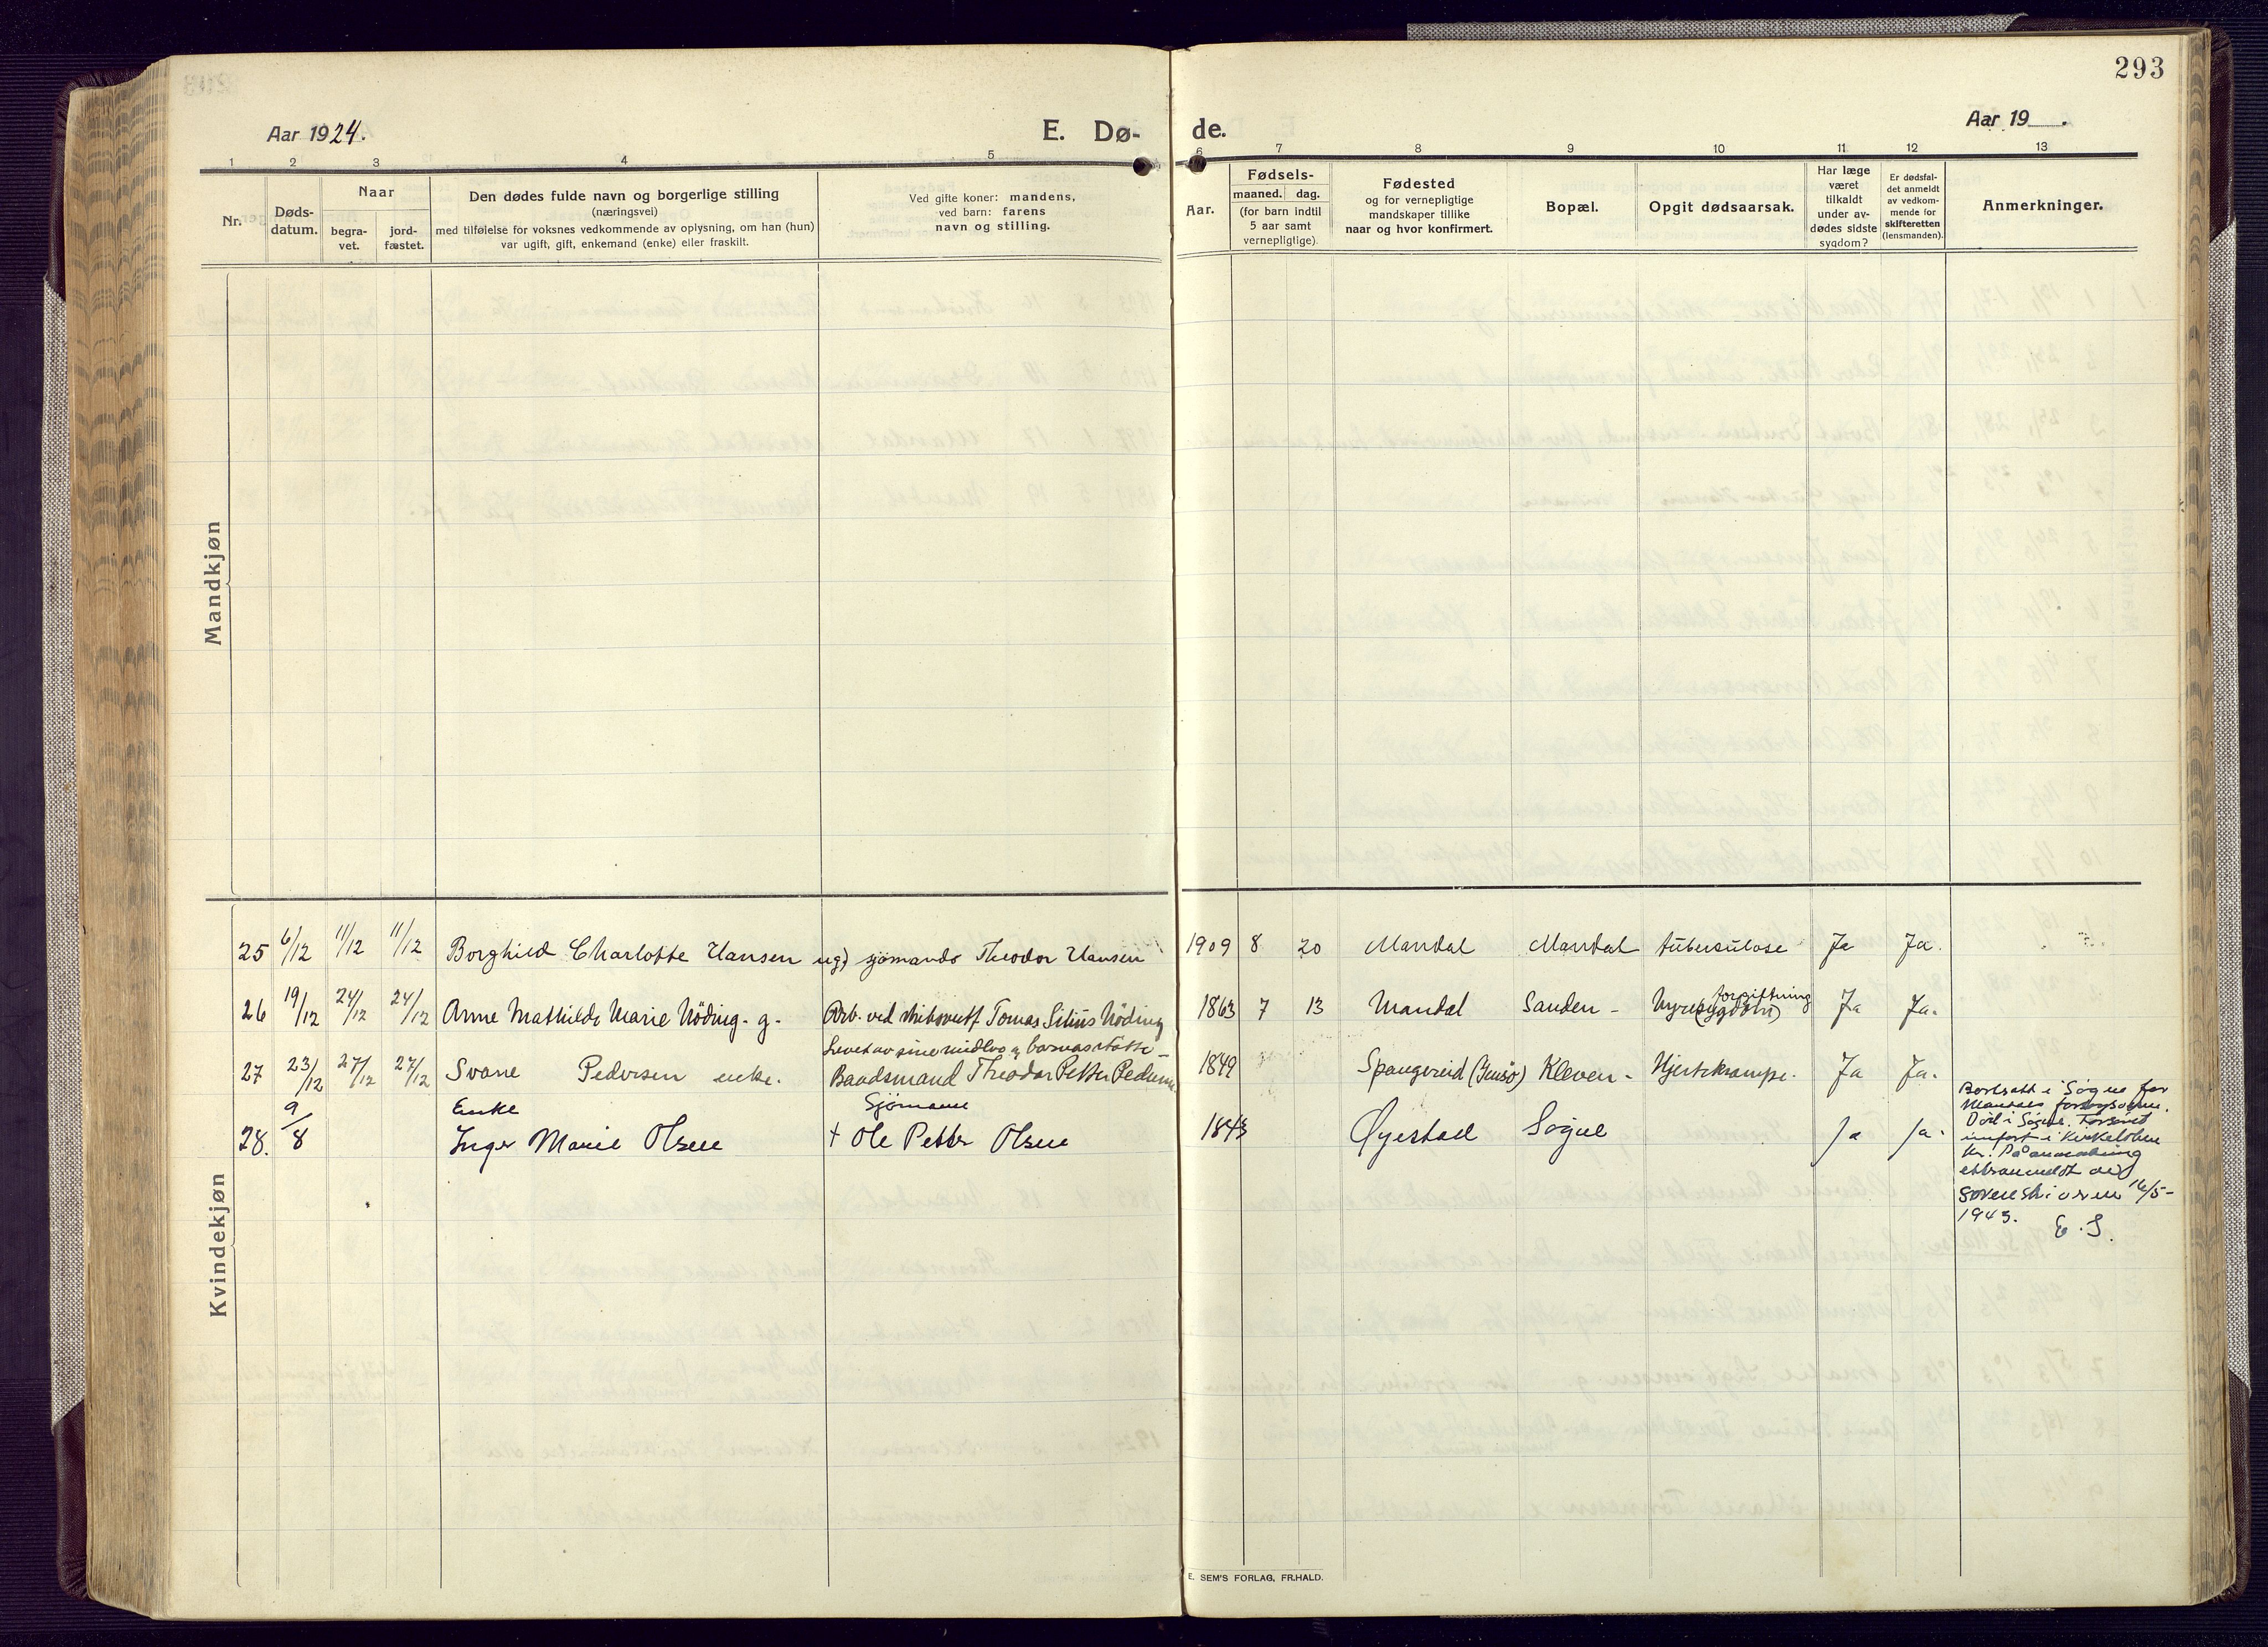 293
Aar 1924.
E. Dø-
de.
Aar 19   .
1 2 3 4 5 6 7 8 9 10 11 12 13
Nr.
Døds-
datum.
Naar
begra-
vet.
jord-
fæstet.
Den dødes fulde navn og borgerlige stilling
(næringsvei)
med tilføielse for voksnes vedkommende av oplysning, om han (hun)
var ugift, gift, enkemand (enke) eller fraskilt.
Ved gifte koner: mandens,
ved barn: farens
navn og stilling.
Aar.
Fødsels-
maaned. dag.
(for barn indtil
5 aar samt
vernepligtige).
Fødested
og for vernepligtige
mandskaper tillike
naar og hvor konfirmert.
Bopæl.
Opgit dødsaarsak.
Har læge
været
tilkaldt
under av-
dødes sidste
sygdom?
Er dødsfal-
det anmeldt
av vedkom-
mende for
skifteretten
(lensmanden).
Anmerkninger.
Mandkjøn
Kvindekjøn
25 6/12 11/12 11/12 Borghild Charlotte Hansen ug) sjømands Theodor Hansen 1909 8 20 Mandal Mandal tuberculose Ja Ja.
26 19/12 24/12 24/12 Anne Mathilde Marie Nöding - g - Arb. ved Tomas Nöding 1863 7 13 Mandal Sanden - Nyre(sygdom) forgiftning Ja Ja.
Levet av sine midler og barnas støtte -
27 23/12 27/12 27/12 Svane Pedersen enke. Baadsmand Theodor Petter Pedersen 1849 Spangereid Kleven - Hjertekrampe. Ja Ja.
Enke Sjømann
28. 9/8 Inger Marie Olsen † Ole Petter Olsen 1843 Øyestad Søgne Ja Ja.
Bortsatt i Søgne for
Mandals forsorgsvesen.
Død i Søgne.
innført i kirkeboken
her. På anmodning
etteranmeldt av
soreneskriveren 16/5-
1943. E. S.
E. SEM'S FORLAG, FR.HALD.